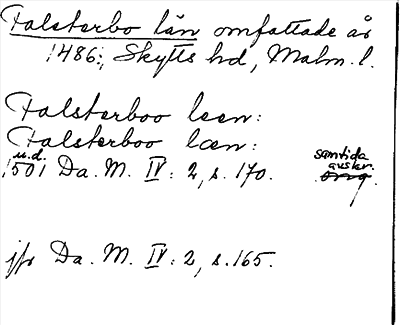 Falsterbo län omfattade år
1486: Skytts hd, Malm. l.
Falsterboo leen:
Falsterboo læn:
u.d.
1501 Da. M. IV: 2, s. 170.
samtida
avskr.
orig.
jfr Da. M. IV: 2, s. 165.